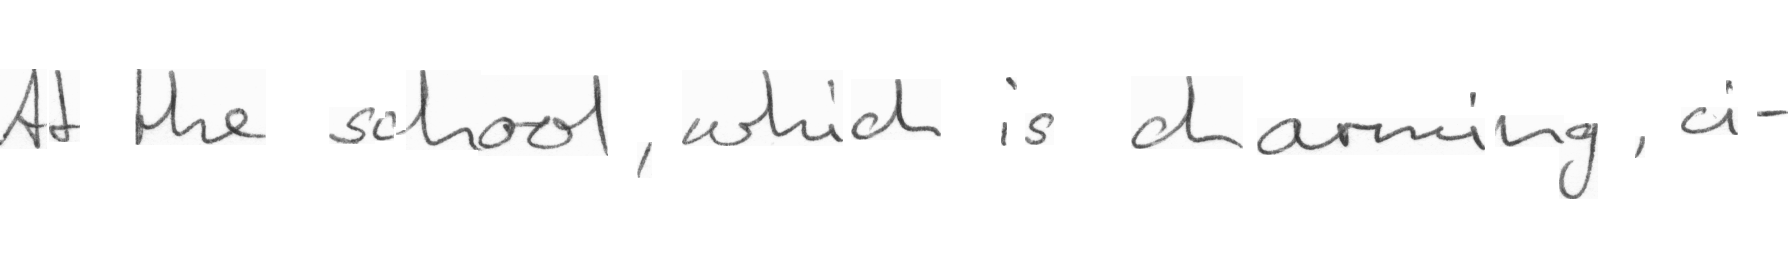 At the school, which is charming, ci-